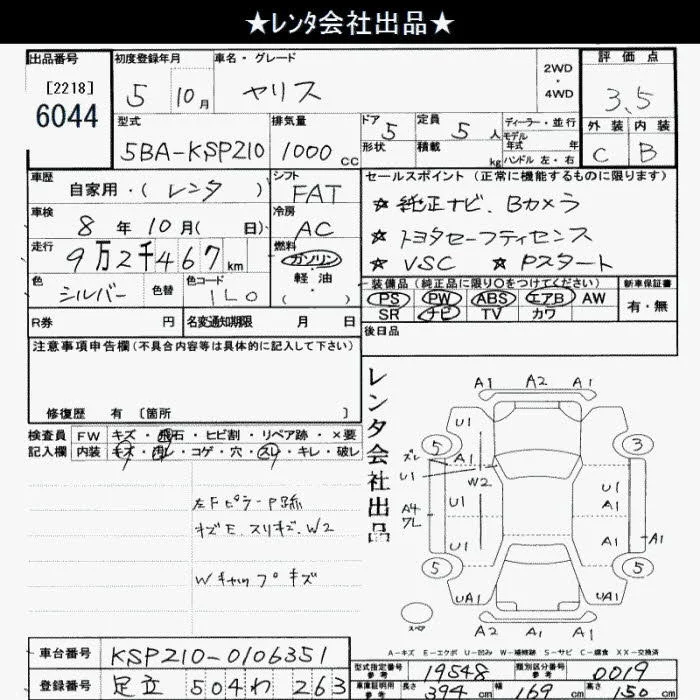 ★レンタ会社出品★
出品番号 初度登録年月 車名・グレード 2WD・4WD 評価点
[2218] 5 10月 ヤリス 3.5
6044
型式 排気量 ドア 5 定員 5人 ディーラー・並行 外装 内装
モデル年式 年
5BA-KSP210 1000cc 形状 積載 kg ハンドル 左・右 C B
車歴 自家用・(レンタ) シフト FAT セールスポイント(正常に機能するものに限ります)
★純正ナビ、Bカメラ
車検 8年10月( 日) 冷房 AC
★トヨタセーフティセンス
走行 9万2千467km 燃料 ガソリン・軽油・( )
★VSC ★Pスタート
色 シルバー 色替 色コード 1L0
装備品(純正品に限り○をつけてください) 新車保証書
PS PW ABS エアB AW 有・無
SR ナビ TV カワ
R券 円 名変通知期限 月 日 後日品
注意事項申告欄(不具合内容等は具体的に記入して下さい)
修復歴 有 〔箇所 〕
検査員記入欄 FW キズ・飛石・ヒビ割・リペア跡・×要
内装 キズ・汚レ・コゲ・穴・スレ・キレ・破レ
左FピラーP跡
キズE、スリキズ、W2
Wキャップキズ
レンタ会社出品
A1 A2 A1
U1
5 3
ズレ A1
U1 W2
U1 U1
A4 A1
ワレ
U1 A1 A1
5 5
UA1 UA1
スペア A2 A1
A-キズ E-エクボ U-凹み W-補修跡 S-サビ C-腐食 XX-交換済
車台番号 KSP210-0106351
型式指定番号 参考 19548 類別区分番号 参考 0019
登録番号 足立 504わ 263
車庫証明用 参考 長さ 394cm 幅 169cm 高さ 150cm